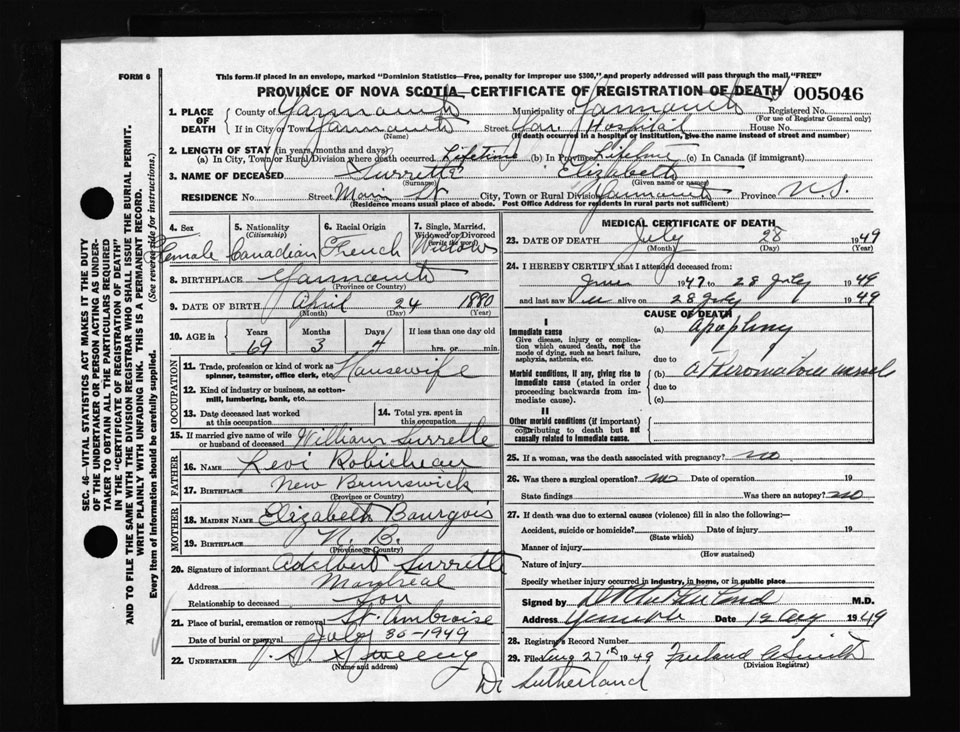 FORM 6
This form if placed in an envelope, marked "Dominion Statistics—Free, penalty for improper use $300," and properly addressed will pass through the mail "FREE"
PROVINCE OF NOVA SCOTIA—CERTIFICATE OF REGISTRATION OF DEATH 005046
1. PLACE OF DEATH County of Yarmouth Municipality of Yarmouth Registered No.
(For use of Registrar General only)
If in City or Town Yarmouth Street Yar. Hospital House No.
(Name) (If death occurred in a hospital or institution, give the name instead of street and number)
2. LENGTH OF STAY (in years, months and days)
(a) In City, Town or Rural Division where death occurred Lifetime (b) In Province Lifetime (c) In Canada (if immigrant)
3. NAME OF DECEASED Surrette Elizabeth
(Surname) (Given name or names)
RESIDENCE No. Street Main St City, Town or Rural Division Yarmouth Province N.S.
(Residence means usual place of abode. Post Office Address for residents in rural parts not sufficient)
4. Sex Female
5. Nationality (Citizenship) Canadian
6. Racial Origin French
7. Single, Married, Widowed or Divorced (write the word) Widow
8. BIRTHPLACE Yarmouth
(Province or Country)
9. DATE OF BIRTH April 24 1880
(Month) (Day) (Year)
10. AGE in Years Months Days If less than one day old
69 3 4 hrs. or min.
OCCUPATION
11. Trade, profession or kind of work as spinner, teamster, office clerk, etc. Housewife
12. Kind of industry or business, as cotton-mill, lumbering, bank, etc.
13. Date deceased last worked at this occupation
14. Total yrs. spent in this occupation
15. If married give name of wife or husband of deceased William Surrette
FATHER
16. NAME Levi Robicheau
17. BIRTHPLACE New Brunswick
(Province or Country)
MOTHER
18. MAIDEN NAME Elizabeth Bourgois
19. BIRTHPLACE N. B.
(Province or Country)
20. Signature of informant Adelbert Surrette
Address Montreal
Relationship to deceased Son
21. Place of burial, cremation or removal St. Ambroise
Date of burial or removal July 30-1949
22. UNDERTAKER Sweeny
(Name and address)
MEDICAL CERTIFICATE OF DEATH
23. DATE OF DEATH July 28 1949
(Month) (Day) (Year)
24. I HEREBY CERTIFY that I attended deceased from:
June 1947 to 28 July 1949
and last saw alive on 28 July 1949
CAUSE OF DEATH
I
Immediate cause (a) Apoplexy
Give disease, injury or complication which caused death, not the mode of dying, such as heart failure, asphyxia, asthenia, etc.
due to
Morbid conditions, if any, giving rise to immediate cause (stated in order proceeding backwards from immediate cause).
(b) Atheromatous vessel
due to
(c)
II
Other morbid conditions (if important) contributing to death but not causally related to immediate cause.
25. If a woman, was the death associated with pregnancy? no
26. Was there a surgical operation? no Date of operation 19
State findings Was there an autopsy? no
27. If death was due to external causes (violence) fill in also the following:
Accident, suicide or homicide? Date of injury 19
(State which)
Manner of injury
(How sustained)
Nature of injury
Specify whether injury occurred in industry, in home, or in public place
Signed by Sutherland M.D.
Address Yarmouth Date 12 Aug 1949
28. Registrar's Record Number
29. Filed Aug 27th 1949 Freeland A Smith
(Division Registrar)
Dr Sutherland
SEC. 46—VITAL STATISTICS ACT MAKES IT THE DUTY
OF THE UNDERTAKER OR PERSON ACTING AS UNDER-
TAKER TO OBTAIN ALL THE PARTICULARS REQUIRED
IN THE "CERTIFICATE OF REGISTRATION OF DEATH"
AND TO FILE THE SAME WITH THE DIVISION REGISTRAR WHO SHALL ISSUE THE BURIAL PERMIT.
WRITE PLAINLY WITH UNFADING INK. THIS IS A PERMANENT RECORD.
Every item of information should be carefully supplied. (See reverse side for instructions.)